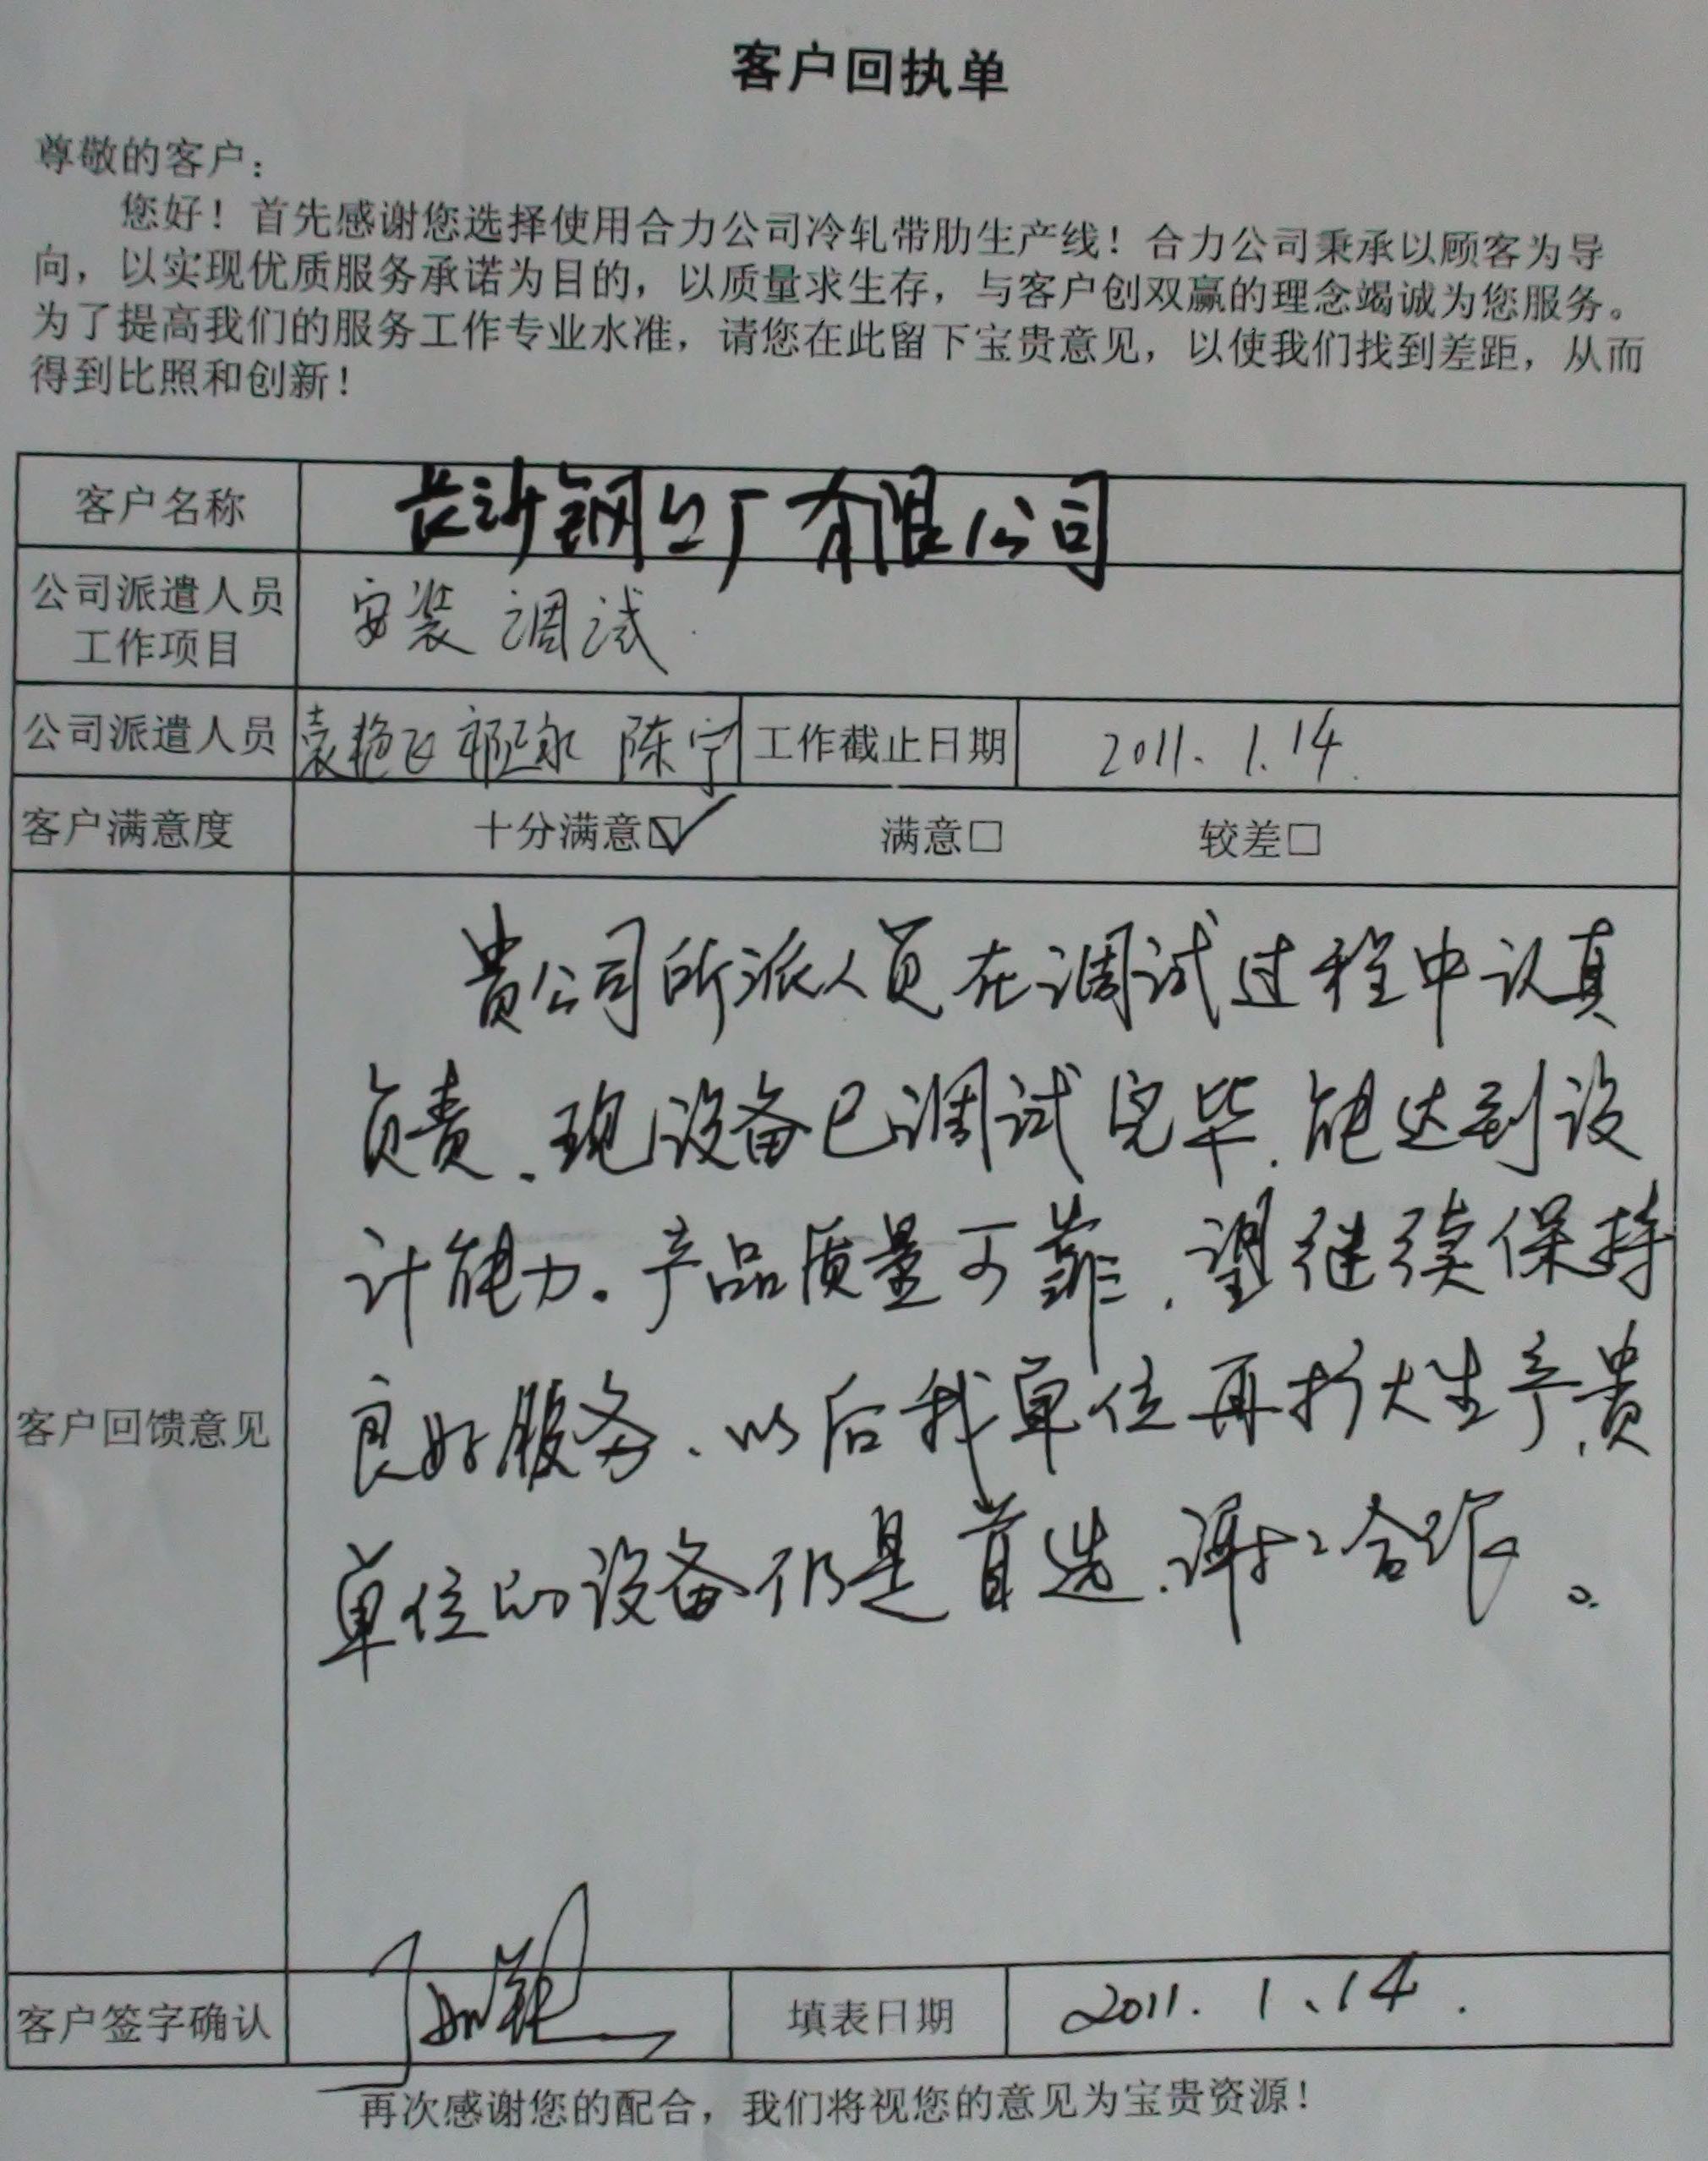 客户回执单
尊敬的客户：
您好！首先感谢您选择使用合力公司冷轧带肋生产线！合力公司秉承以顾客为导
向，以实现优质服务承诺为目的，以质量求生存，与客户创双赢的理念竭诚为您服务。
为了提高我们的服务工作专业水准，请您在此留下宝贵意见，以使我们找到差距，从而
得到比照和创新！
客户名称 长沙钢厂有限公司
公司派遣人员
工作项目 安装 调试
公司派遣人员 袁艳飞 陈宁 工作截止日期 2011.1.14.
客户满意度 十分满意☑ 满意□ 较差□
客户回馈意见
贵公司所派人员在调试过程中认真
负责、现设备已调试完毕.能达到设
计能力。产品质量可靠，望继续保持
良好服务、以后我单位再扩大生产,贵
单位的设备仍是首选.谢谢合作。
客户签字确认 填表日期 2011.1.14.
再次感谢您的配合，我们将视您的意见为宝贵资源！